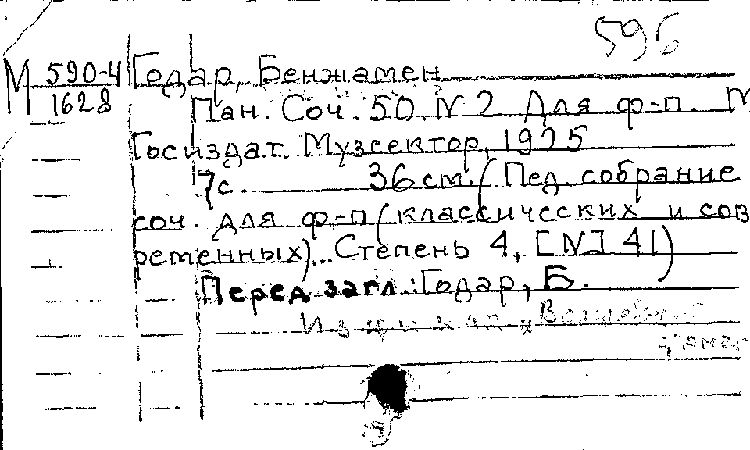 596
М 590-4 Годар, Бенжамен
1628 Пан. Соч. 50 N 2 Для ф-п. М
Госиздат. Музсектор, 1925
7с. 36 см. (Пед. собрание
соч. для ф-п (классических и сов
ременных). Степень 4, [N] 41)
Перед загл.: Годар, Б.
Из цикла